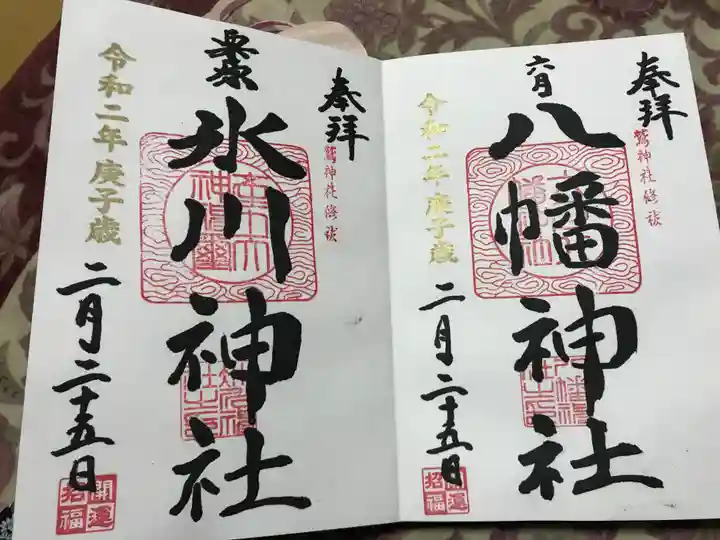 奉拝
六月
八幡神社
鷲神社修祓
令和二年庚子歳
二月二十五日
開運
招福
奉拝
栗原
氷川神社
鷲神社修祓
令和二年庚子歳
二月二十五日
開運
招福